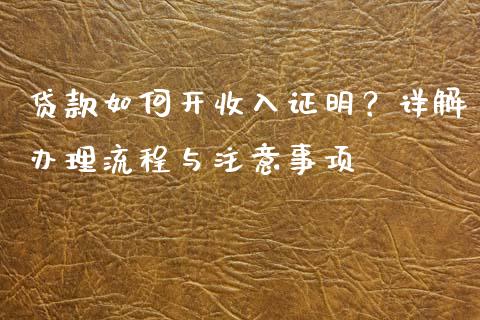 贷款如何开收入证明？详解
办理流程与注意事项